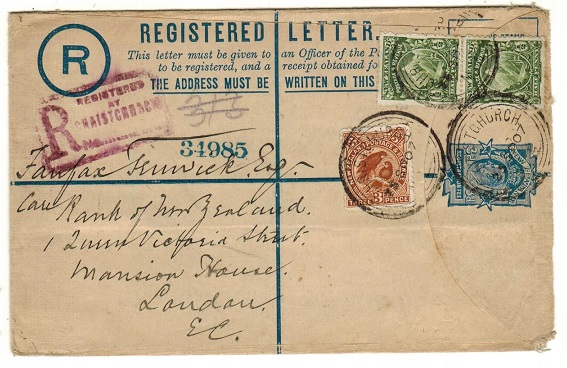 R
REGISTERED LETTER.
This letter must be given to an Officer of the
to be registered, and a receipt obtained for
THE ADDRESS MUST BE WRITTEN ON THIS
REGISTERED
AT
CHRISTCHURCH
R
34985
THREE 3 PENCE
TCHURCH
Fairfax Fenwick Esq.
Care Bank of New Zealand.
1 Queen Victoria Street.
Mansion House.
London.
E.C.